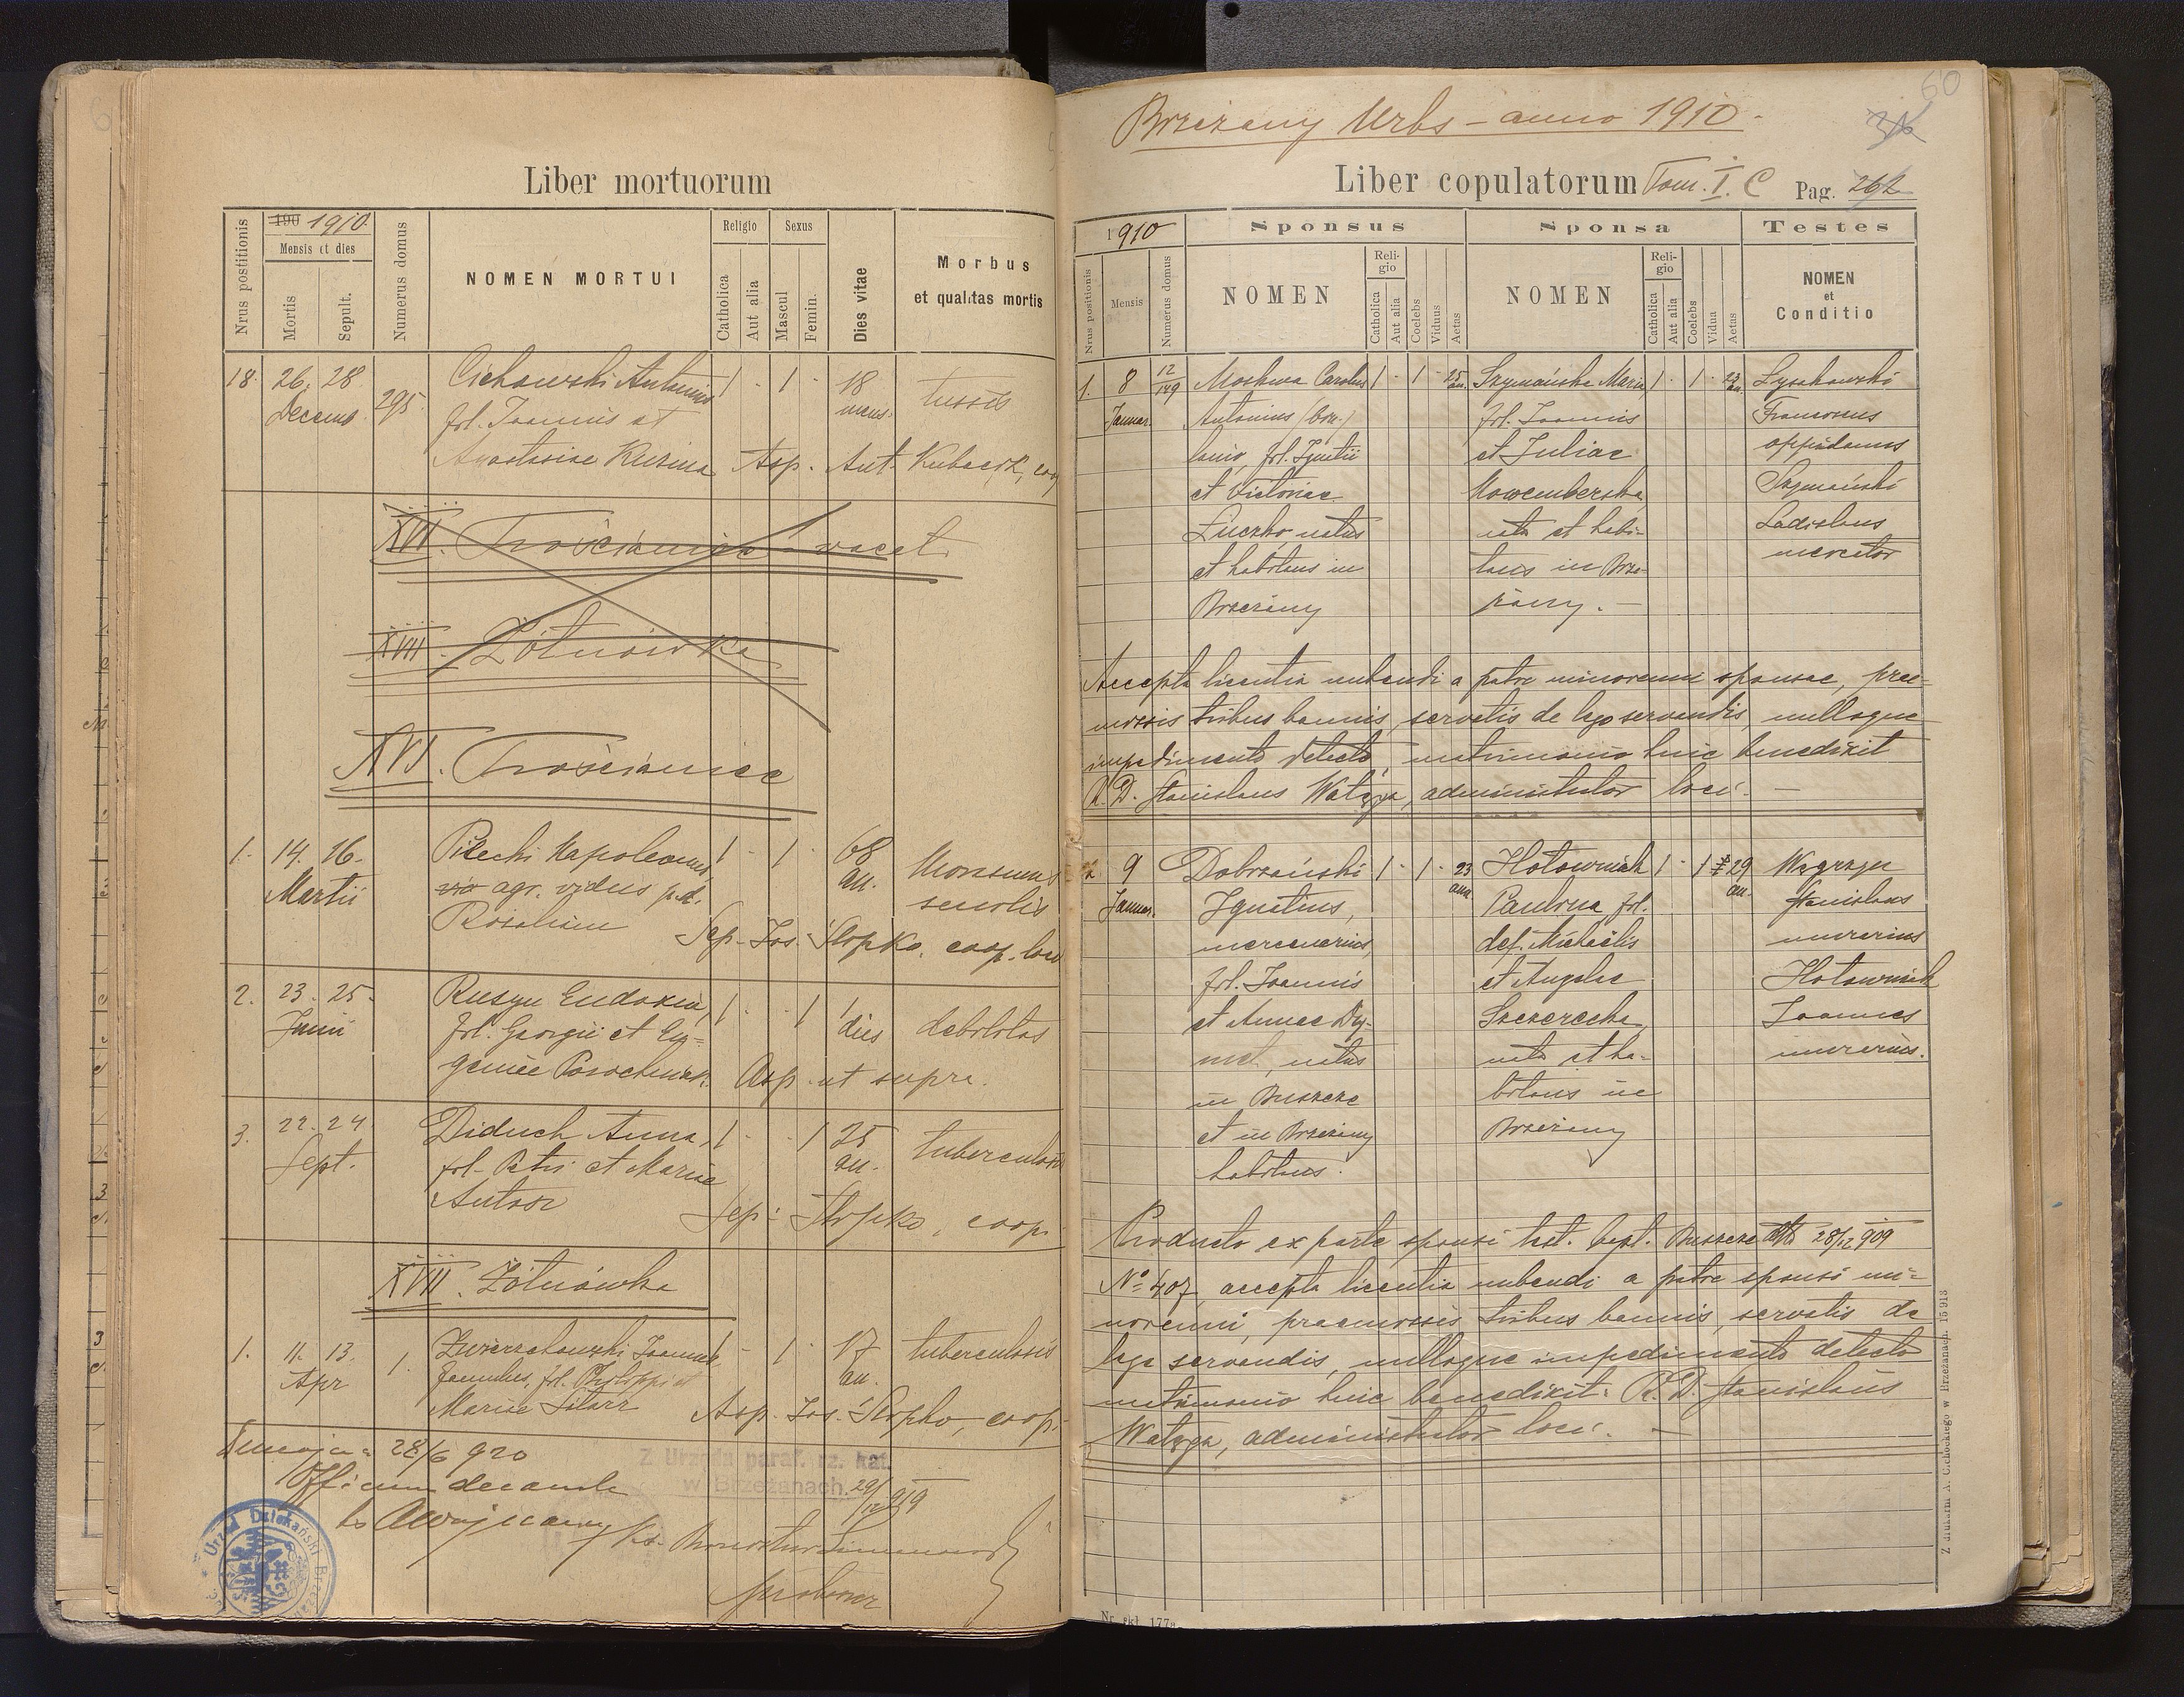 Liber mortuorum
Nrus postitionis
190 1910.
Mensis et dies
Mortis
Sepult.
Numerus domus
NOMEN MORTUI
Religio
Catholica
Aut alia
Sexus
Mascul
Femin.
Dies vitae
Morbus
et qualitas mortis
18. 26. 28 295. Cichowski Antonius 1 - 1 - 18 tussis
Decemb. fil. Joannis et mens.
Anastasiae Kusina Asp. Ant. Kubacik, coop
XVI. Trościaniec vacat
XVII. Żółnówka
XVI. Trościaniec
1. 14. 16. Pilecki Napoleonus, 1 - 1 - 68 Marasmus
Martii agr. vidus p.d. an. senilis
Rosaliam Sep. Jos. Słopko, coop. loci
2. 23. 25. Rusyn Eudoxia, 1 - - 1 1 debilitas
Junii fil. Georgii et Eu- dies
geniae Asp. ut supra.
3. 22. 24 Diduch Anna, 1 - - 1 25 tuberculosis
Sept. fil. Petri et Mariae an.
Antosz Sep. Słopko, coop.
XVII. Żółnówka
1. 11. 13. 1. Zwierzchowski Joannes 1 - 1 - 17 tuberculosis
Apr famulus, fil. Philippi et an.
Mariae Sitarz Asp. Jos. Słopko, coop.
28/6 920
Officium decanale
Z Urzędu paraf. rz. kat.
w Brzeżanach. 29/12 919
Urząd Dziekański
proboszcz
60
Brzeżany Urbs - anno 1910.
Liber copulatorum Tom. I. C Pag. 262
1910
Nrus positionis
Mensis
Numerus domus
Sponsus
NOMEN
Religio
Catholica
Aut alia
Coelebs
Viduus
Aetas
Sponsa
NOMEN
Religio
Catholica
Aut alia
Coelebs
Vidua
Aetas
Testes
NOMEN
et
Conditio
1. 8 12/149 Moskwa Carolus 1 - 1 - 25 an. Szymańska Maria 1 - 1 - 23 an. Łysakowski
Januar. Antonius (bin.) fil. Joannis Franciscus
lanio, fil. Ignatii et Juliae oppidanus
et Victoriae Nowemberska, Szymański
Łuczko natus nata et habi- Ladislaus
et habitans in tans in Brze- mercator
Brzeżany żany. -
Accepta licentia nubendi a patre minorenni sponsae, prae-
missis tribus bannis, servatis de lege servandis, nulloque
impedimento detecto, matrimonio huic benedixit
R. D. Stanislaus Wałęga, administrator loci. -
2. 9 Dobrzański 1 - 1 - 23 ann Hołowniak 1 - 1 29 an. Węgrzyn
Januar. Ignatius, Paulina fil. Stanislaus
mercenarius, def. Michaelis murarius
fil. Joannis et Angelae Hołowniak
et Annae Dy- Szczerecka, Joannes
mel, natus nata et ha- murarius.
in Buszcze bitans in
et in Brzeżany Brzeżany
habitans.
Producto ex parte sponsi test. bapt. Buszcze dto 28/12 909
No 407, accepta licentia nubendi a patre sponsi mi-
norenni, praemissis tribus bannis, servatis de
lege servandis, nulloque impedimento detecto
matrimonio huic benedixit R. D. Stanislaus
Wałęga, administrator loci. -
Z drukarni A. Cichockiego w Brzeżanach. 15 913
Nr. skł. 177a